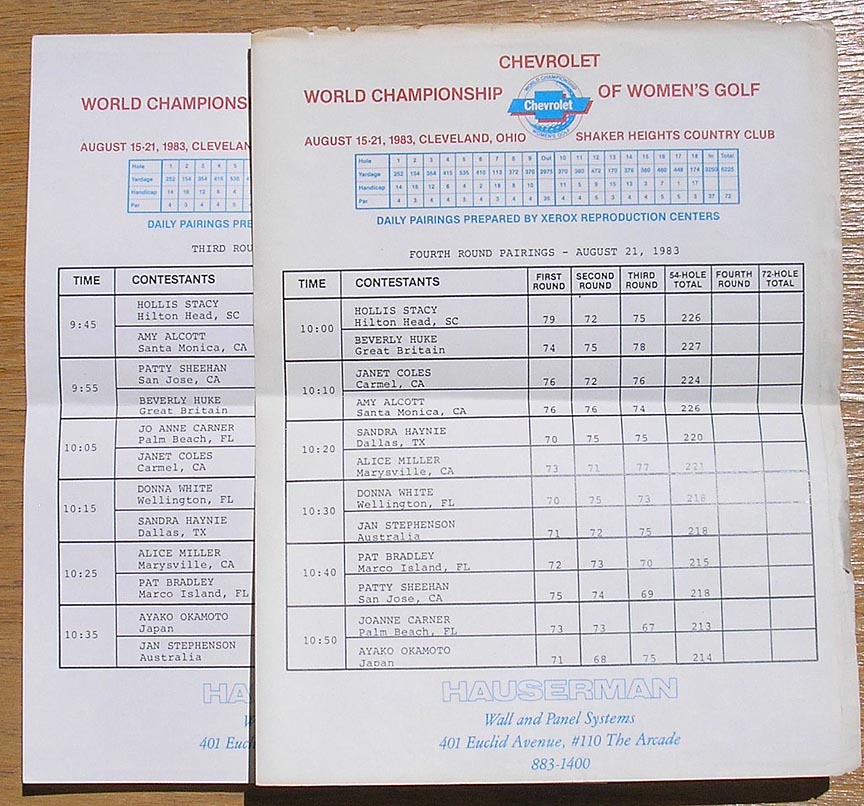 WORLD CHAMPIONS
AUGUST 15-21, 1983, CLEVELAN
Hole 1 2 3 4 5
Yardage 252 154 354 415 535
Handicap 14 16 12 8 4
Par 4 3 4 4 5
DAILY PAIRINGS PRE
THIRD ROU
TIME CONTESTANTS
9:45 HOLLIS STACY
Hilton Head, SC
AMY ALCOTT
Santa Monica, CA
9:55 PATTY SHEEHAN
San Jose, CA
BEVERLY HUKE
Great Britain
10:05 JO ANNE CARNER
Palm Beach, FL
JANET COLES
Carmel, CA
10:15 DONNA WHITE
Wellington, FL
SANDRA HAYNIE
Dallas, TX
10:25 ALICE MILLER
Marysville, CA
PAT BRADLEY
Marco Island, FL
10:35 AYAKO OKAMOTO
Japan
JAN STEPHENSON
Australia
HA
W
401 Eucl
CHEVROLET
WORLD CHAMPIONSHIP OF WOMEN'S GOLF
WORLD CHAMPIONSHIP
Chevrolet
WOMEN'S GOLF
AUGUST 15-21, 1983, CLEVELAND, OHIO SHAKER HEIGHTS COUNTRY CLUB
Hole 1 2 3 4 5 6 7 8 9 Out 10 11 12 13 14 15 16 17 18 In Total
Yardage 252 154 354 415 535 410 113 372 370 2975 370 380 472 170 376 380 460 448 174 3250 6225
Handicap 14 16 12 6 4 2 18 8 10 11 5 9 15 13 2 7 1 17
Par 4 3 4 4 5 4 3 4 4 35 4 4 5 3 4 4 5 5 3 37 72
DAILY PAIRINGS PREPARED BY XEROX REPRODUCTION CENTERS
FOURTH ROUND PAIRINGS - AUGUST 21, 1983
TIME CONTESTANTS FIRST ROUND SECOND ROUND THIRD ROUND 54-HOLE TOTAL FOURTH ROUND 72-HOLE TOTAL
10:00 HOLLIS STACY
Hilton Head, SC 79 72 75 226
BEVERLY HUKE
Great Britain 74 75 78 227
10:10 JANET COLES
Carmel, CA 76 72 76 224
AMY ALCOTT
Santa Monica, CA 76 76 74 226
10:20 SANDRA HAYNIE
Dallas, TX 70 75 75 220
ALICE MILLER
Marysville, CA 73 71 77 221
10:30 DONNA WHITE
Wellington, FL 70 75 73 218
JAN STEPHENSON
Australia 71 72 75 218
10:40 PAT BRADLEY
Marco Island, FL 72 73 70 215
PATTY SHEEHAN
San Jose, CA 75 74 69 218
10:50 JOANNE CARNER
Palm Beach, FL 73 73 67 213
AYAKO OKAMOTO
Japan 71 68 75 214
HAUSERMAN
Wall and Panel Systems
401 Euclid Avenue, #110 The Arcade
883-1400